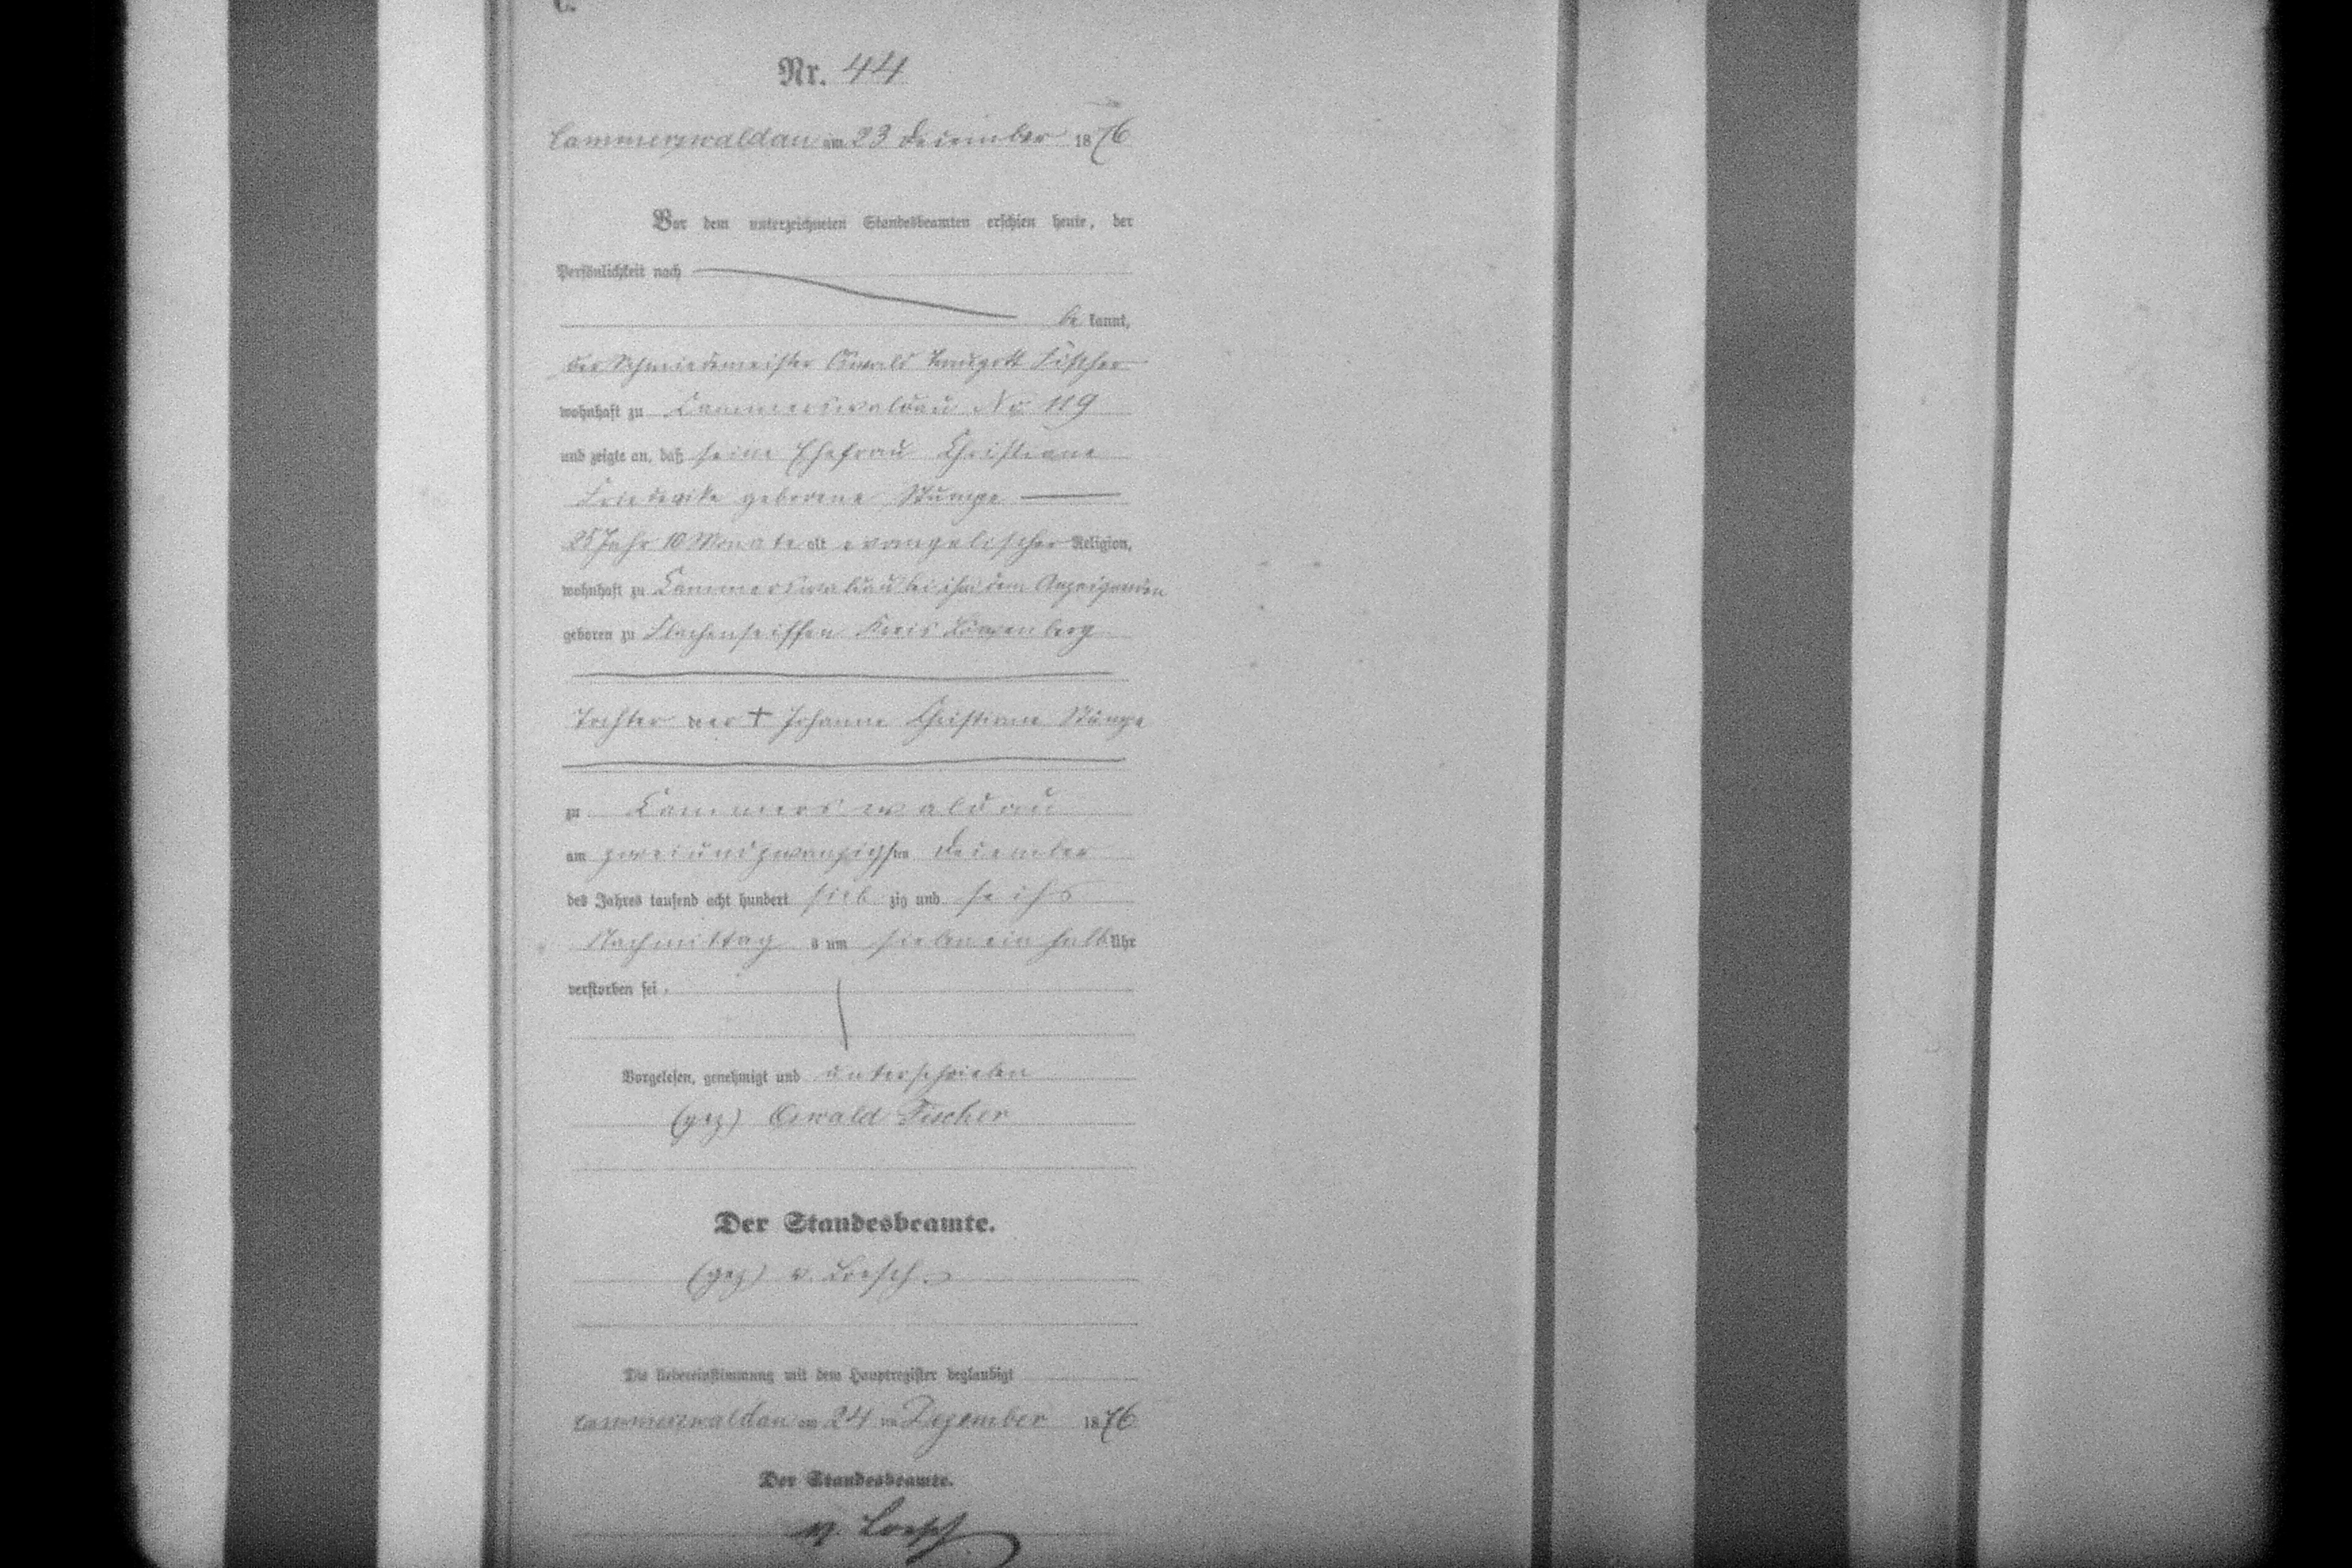 C.
Nr. 44
Cammerswaldau am 23 December 1876
Vor dem unterzeichneten Standesbeamten erschien heute, der
Persönlichkeit nach
be kannt,
der Schmiedemeister Oswald Traugott Fischer
wohnhaft zu Cammerswaldau No 119
und zeigte an, daß seine Ehefrau Christiane
Friederike geborene Stumpe
25 Jahr 10 Monate alt evangelischer Religion,
wohnhaft zu Cammerswaldau bei ihm dem Anzeigenden
geboren zu Flachenseiffen Kreis Löwenberg
Tochter der † Johanne Christiane Stumpe
zu Cammerswaldau
am zweiundzwanzigsten December
des Jahres tausend acht hundert sieb zig und sechs
Nachmittag s um sieben ein halb Uhr
verstorben sei.
Vorgelesen, genehmigt und unterschrieben
(gez) Oswald Fischer
Der Standesbeamte.
(gez) v. Loesch.
Die Uebereinstimmung mit dem Hauptregister beglaubigt
Cammerswaldau am 24 ten Dezember 1876
Der Standesbeamte.
v. Loesch